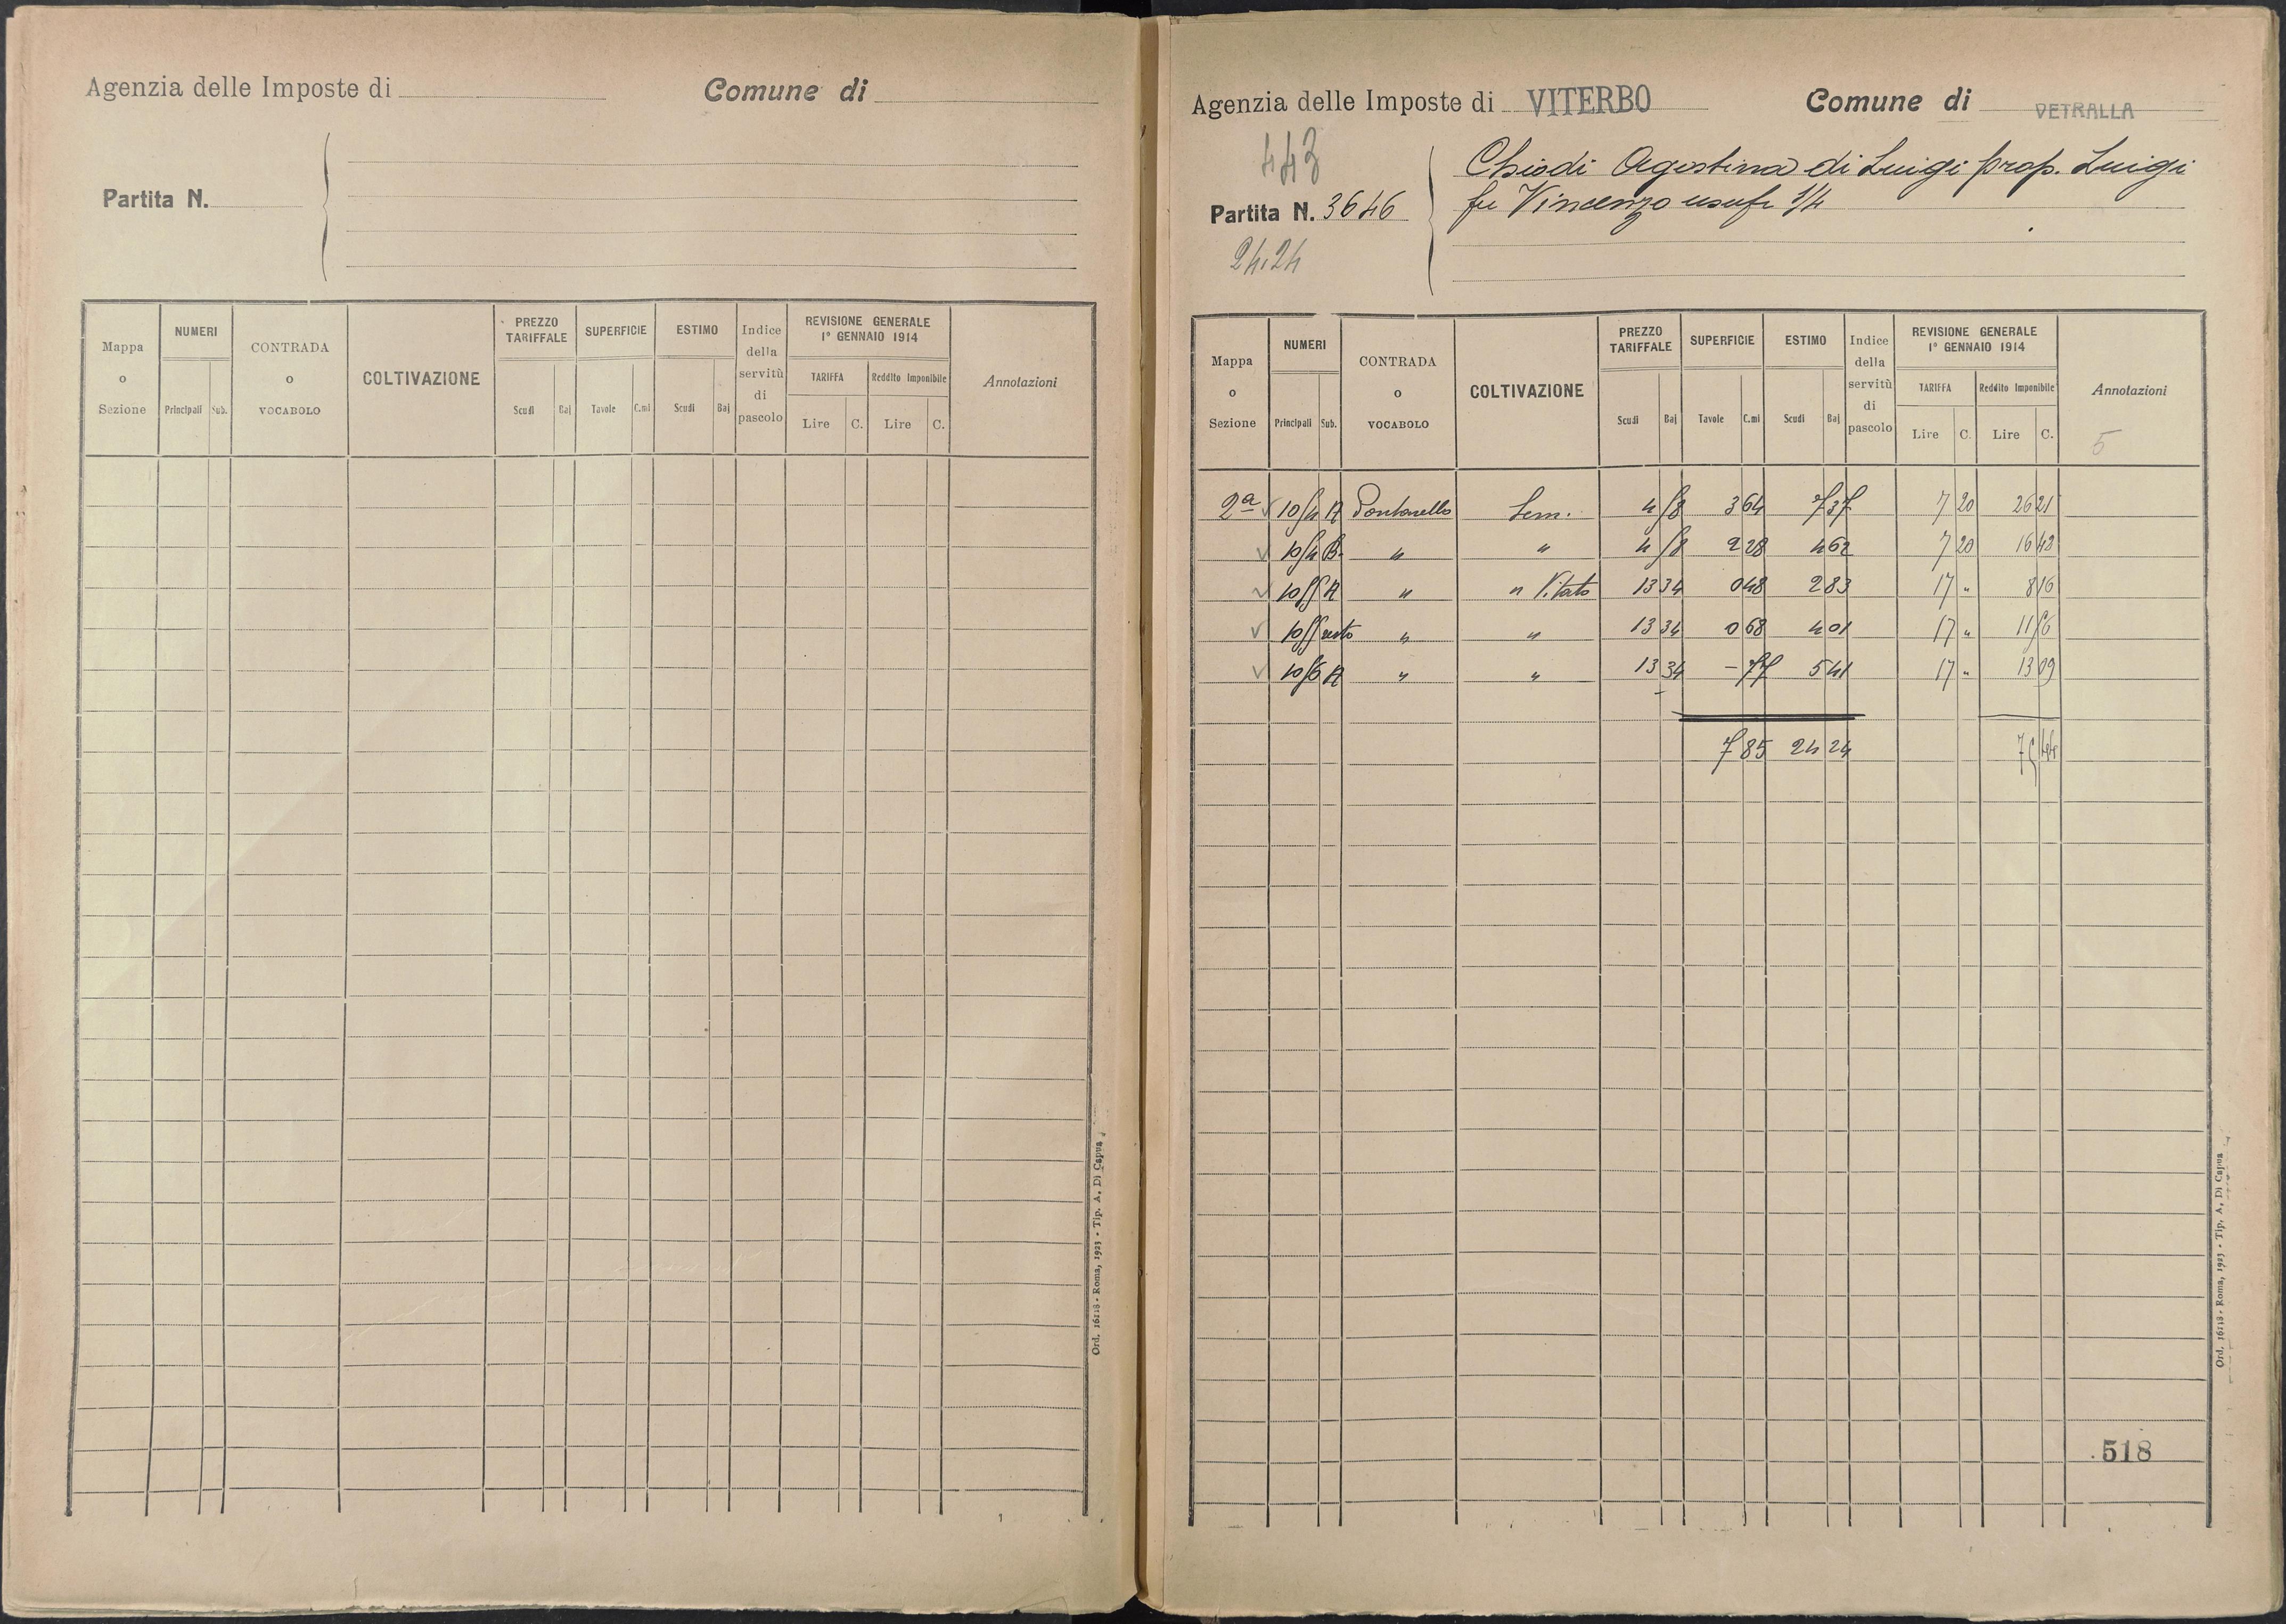 Agenzia delle Imposte di
Comune di
Partita N.
Mappa o Sezione
NUMERI
Principali Sub.
CONTRADA o VOCABOLO
COLTIVAZIONE
PREZZO TARIFFALE
Scudi Baj
SUPERFICIE
Tavole C.mi
ESTIMO
Scudi Baj
Indice della servitù di pascolo
REVISIONE GENERALE
1° GENNAIO 1914
TARIFFA
Reddito Imponibile
Lire C. Lire C.
Annotazioni
Ord. 16118 - Roma, 1923 - Tip. A. Di Capua
Agenzia delle Imposte di VITERBO
Comune di VETRALLA
443
Partita N. 3646
24.24
Chiodi Agostina di Luigi prop. Luigi
fu Vincenzo usuf. 1/4
Mappa o Sezione
NUMERI
Principali Sub.
CONTRADA o VOCABOLO
COLTIVAZIONE
PREZZO TARIFFALE
Scudi Baj
SUPERFICIE
Tavole C.mi
ESTIMO
Scudi Baj
Indice della servitù di pascolo
REVISIONE GENERALE
1° GENNAIO 1914
TARIFFA
Reddito Imponibile
Lire C. Lire C.
Annotazioni
5
2ª 10/4 A Sem. 3 64 7 37 7 20 26 21
10/4 B. " " 2 28 4 62 7 20 16 42
A " " Vitato 13 34 0 48 2 83 17 " 8 16
resto " " 13 34 0 68 4 01 17 " 11 56
10/6 A " " 13 34 - 77 5 41 17 " 13 09
7 85 24 24 75 44
518
Ord. 16118 - Roma, 1923 - Tip. A. Di Capua